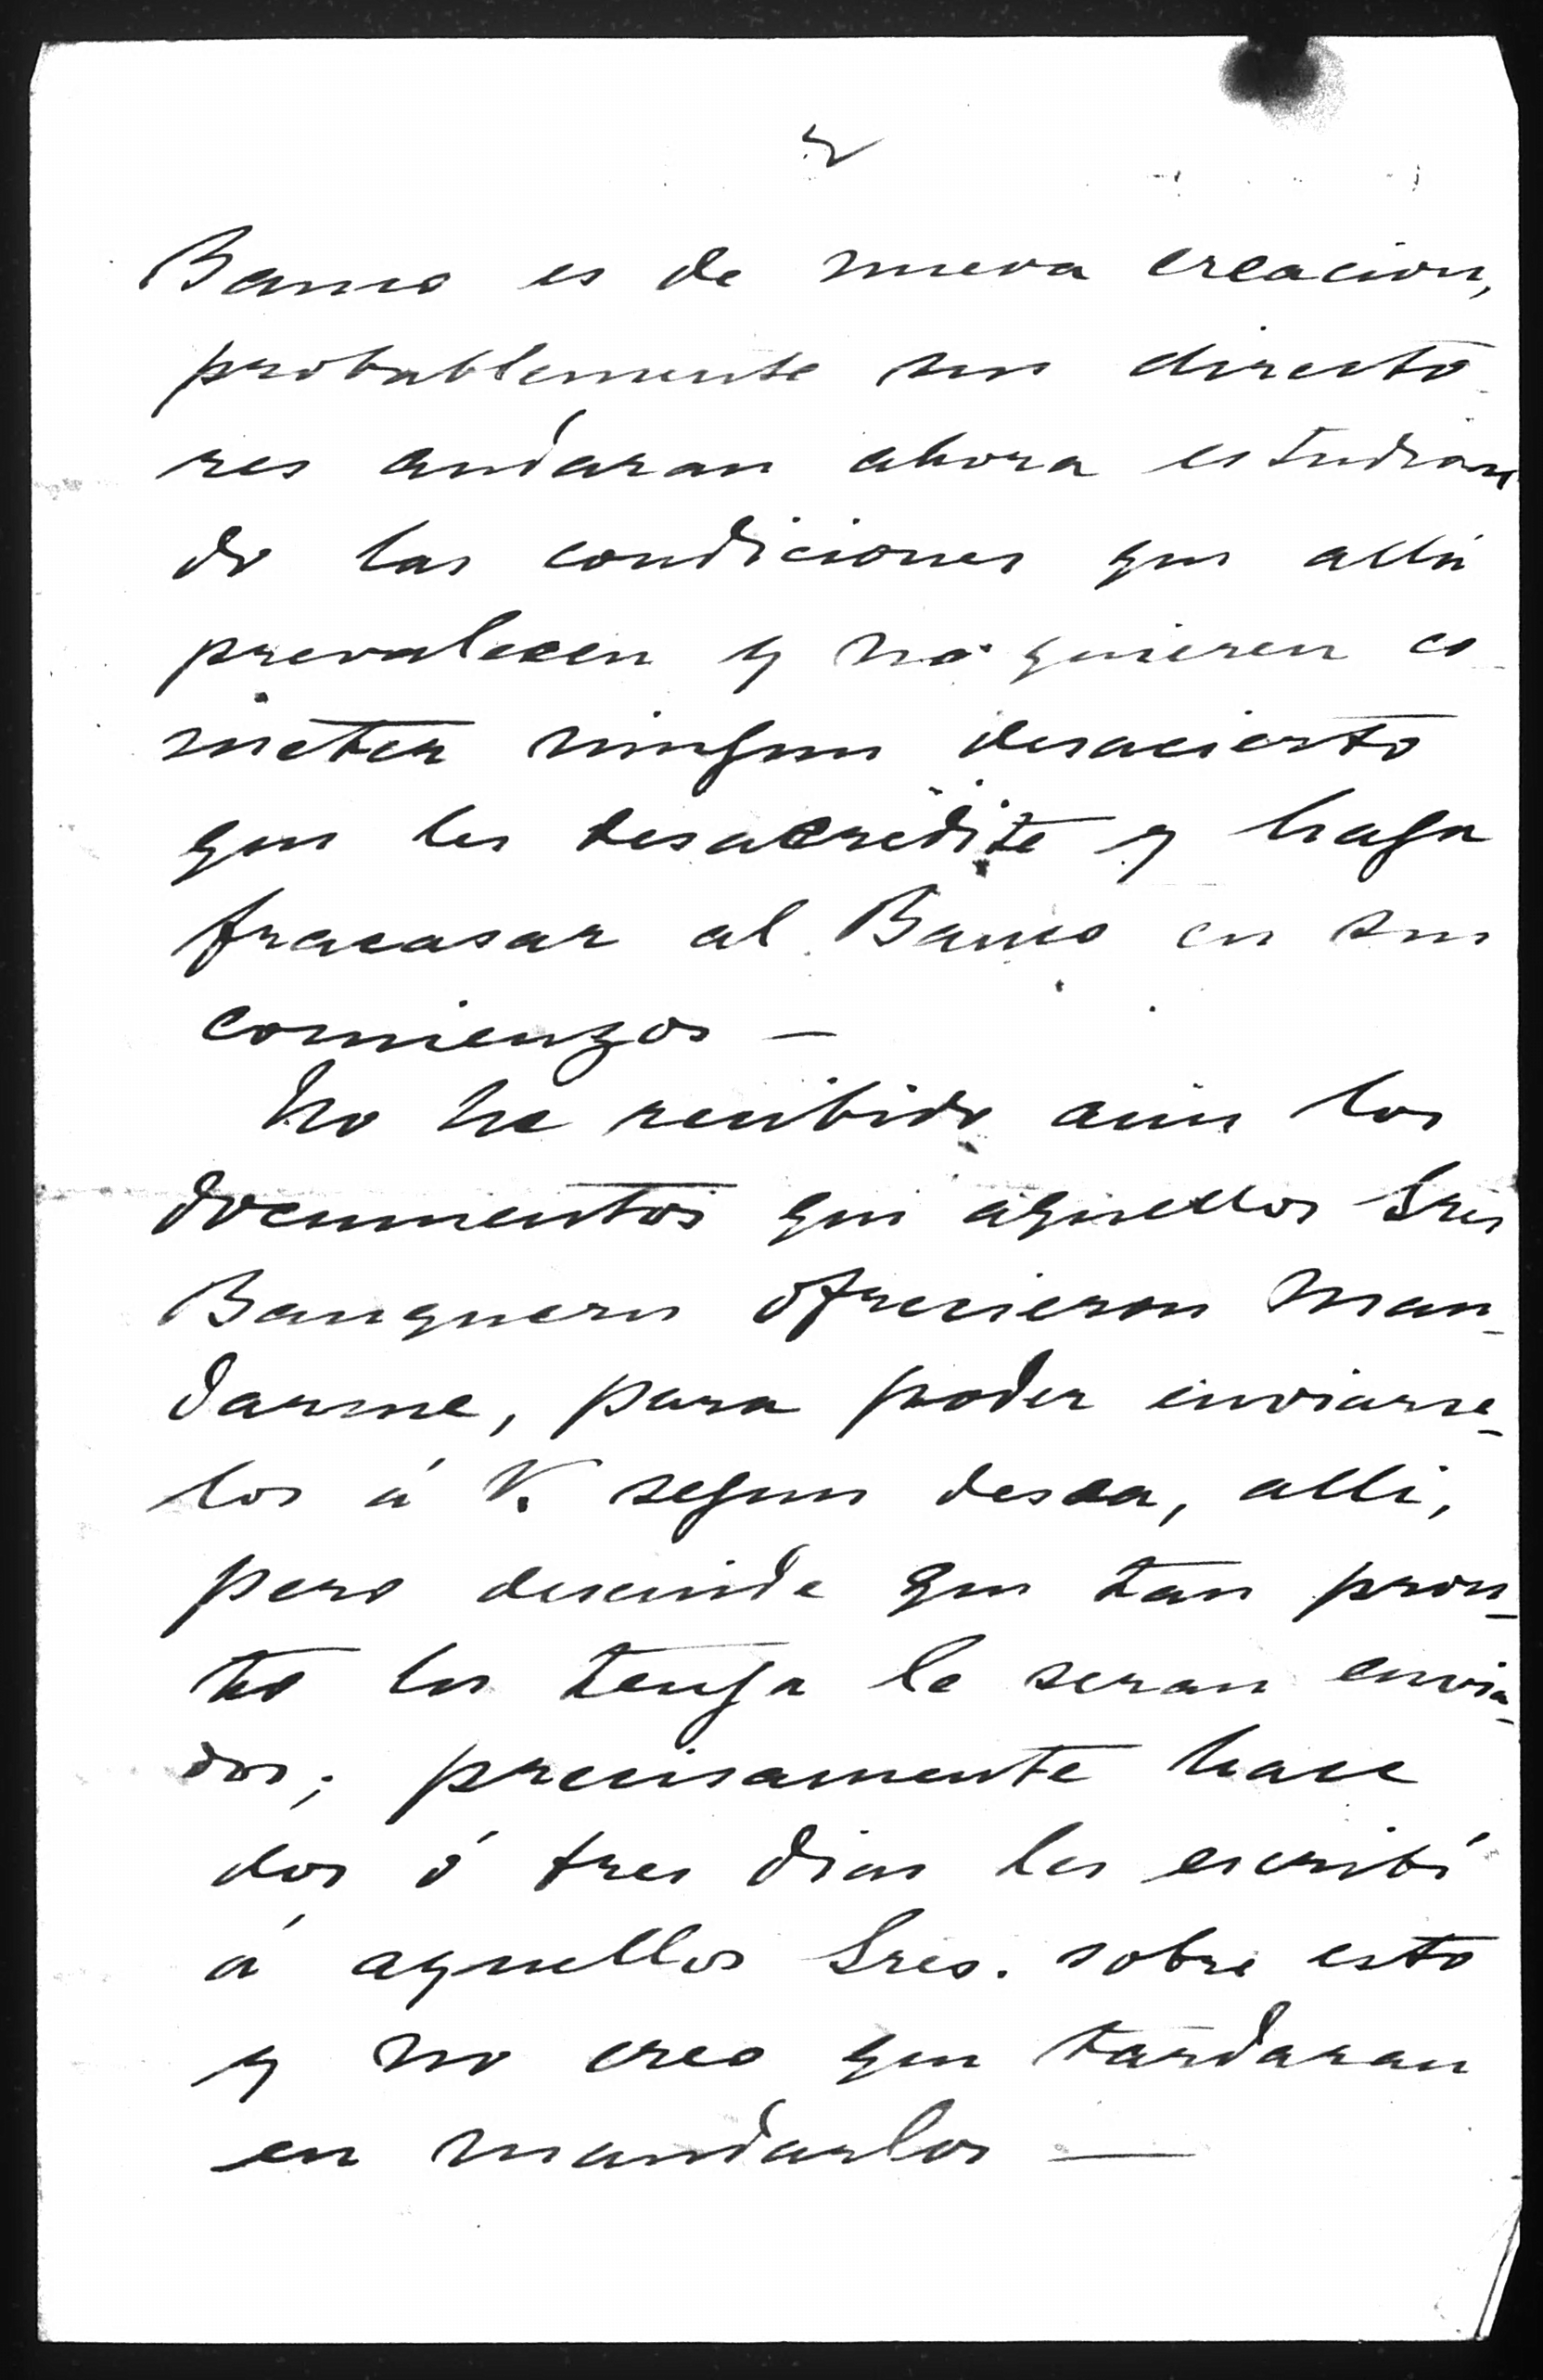 2
Banco es de nueva creacion,
probablemente sus directo
res andaran ahora estudian
do las condiciones que allá
prevalecen y no quieren co
meter ningun desacierto
que les desacredite y haga
fracasar al Banco en sus
comienzos —
No he recibido aún los
documentos que aquellos Sres
Banqueros ofrecieron man-
darme, para poder enviarse-
los á V. segun desea, alli,
pero descuide que tan pron-
to los tenga le seran envia-
dos; precisamente hace
dos ó tres dias les escribí
á aquellos Sres. sobre esto
y no creo que tardaran
en mandarlos —